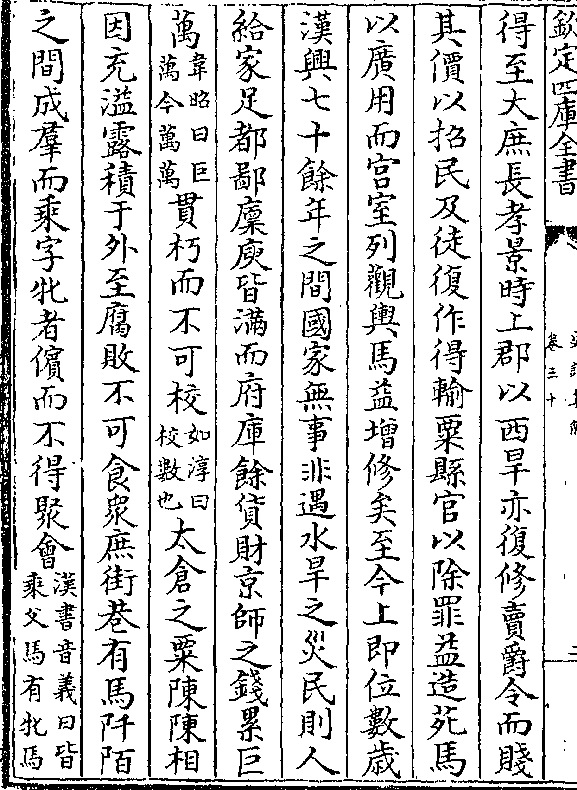 欽定四庫全書
卷三十
得至大庶長孝景時上郡以西旱亦復修賣爵令而賤
其價以招民及徒復作得輸粟縣官以除罪益造苑馬
以廣用而宫室列觀輿馬益增修矣至今上即位數歲
漢興七十餘年之間國家無事非遇水旱之災民則人
給家足都鄙廩庾皆滿而府庫餘貨財京師之錢累巨
萬韋昭曰巨萬今萬萬貫朽而不可校如淳曰校數也太倉之粟陳陳相
因充溢露積于外至腐敗不可食衆庶街巷有馬阡陌
之間成羣而乘字牝者儐而不得聚會漢書音義曰皆乘父馬有牝馬